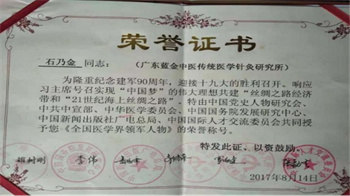 荣誉证书
石乃金 同志：（广东蓝金中医传统医学针灸研究所）
为隆重纪念建军90周年，迎接十九大的胜利召开、响应
习主席号召实现“中国梦”的伟大理想共建“丝绸之路经济
带和“21世纪海上丝绸之路”，特由中国党史人物研究会、
中共中宣部、中国文化管理协会、中国国务院发展研究中心、
中国新闻出版社广电总局、中国国际人才交流委员会共同授
予您《全国医学界领军人物》的荣誉称号。
特发此证、以资鼓励
2017年8月14日